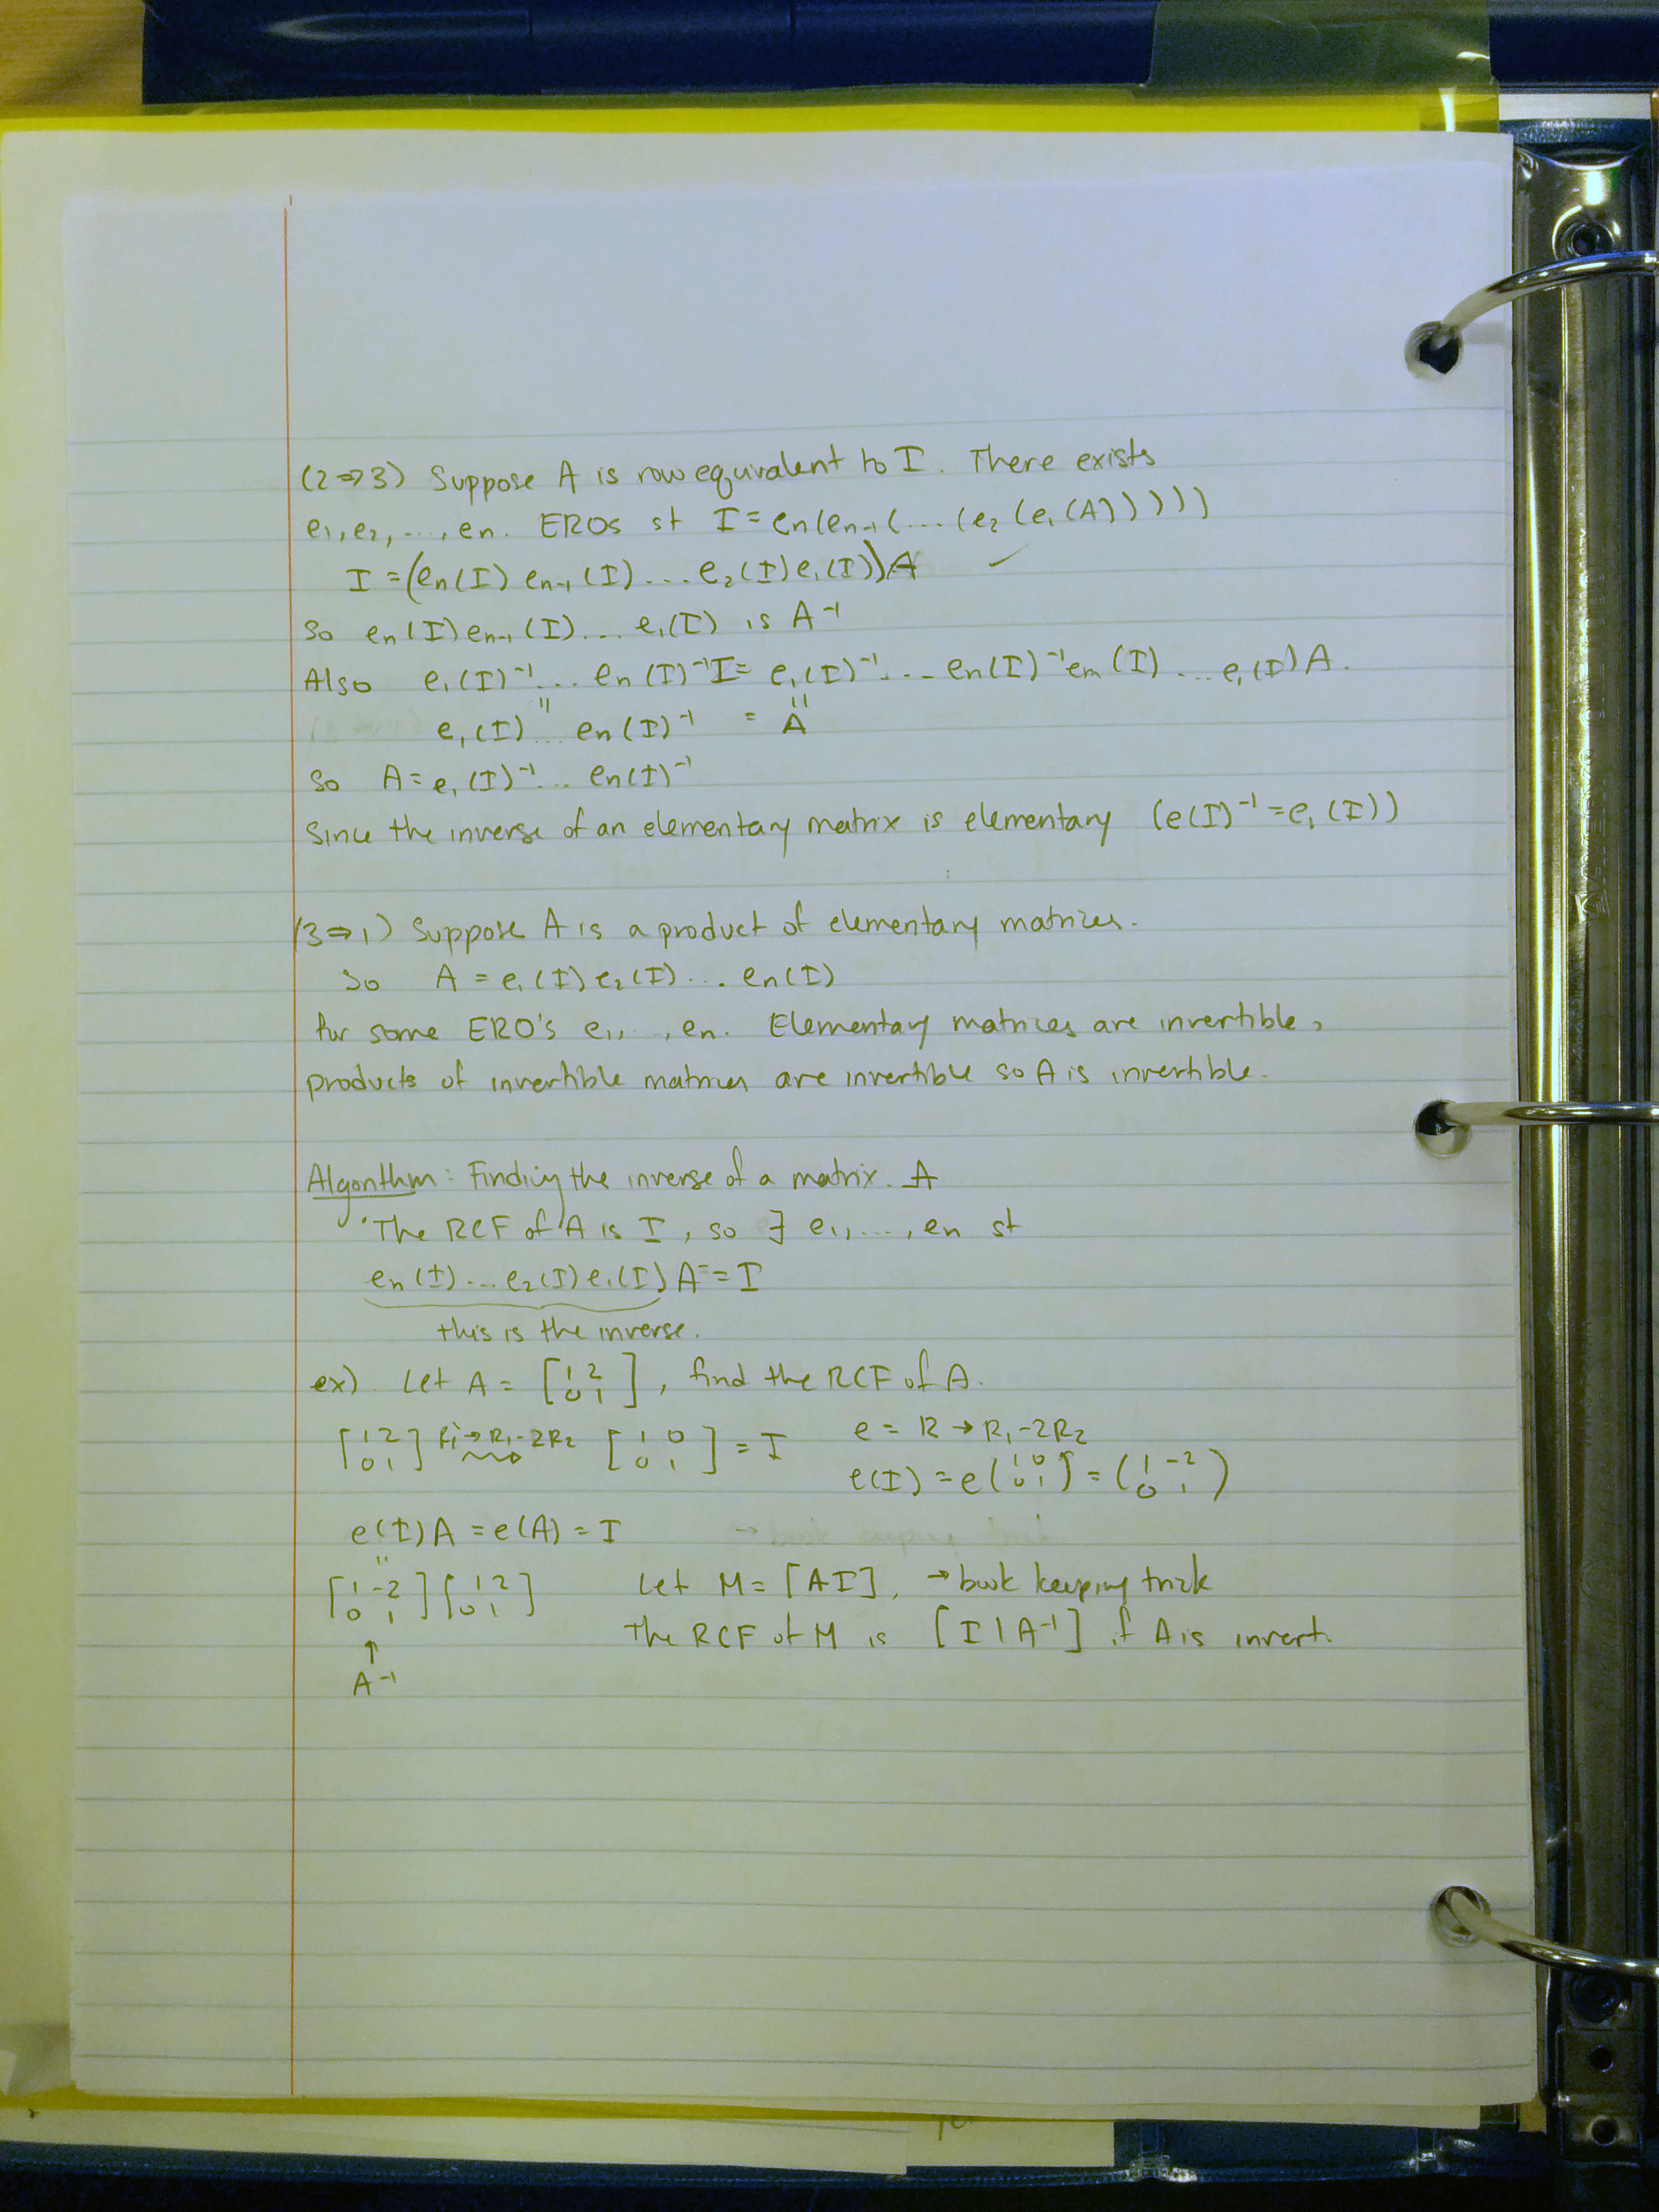 (2⇒3) Suppose A is row equivalent to I. There exists
e₁,e₂,...,en. EROs st I = en(en-1(...(e₂(e₁(A)))))
I = (en(I) en-1(I)...e₂(I)e₁(I))A ✓
So en(I)en-1(I)...e₁(I) is A⁻¹
Also e₁(I)⁻¹...en(I)⁻¹I = e₁(I)⁻¹...en(I)⁻¹en(I)...e₁(I)A.
e₁(I) " en(I)⁻¹ = A
So A = e₁(I)⁻¹...en(I)⁻¹
Since the inverse of an elementary matrix is elementary (e(I)⁻¹=e₁(I))
(3⇒1) Suppose A is a product of elementary matrices.
So A = e₁(I)e₂(I)...en(I)
for some ERO's e₁,..,en. Elementary matrices are invertible,
products of invertible matrices are invertible so A is invertible.
Algorithm: Finding the inverse of a matrix. A
·The RCF of A is I, so ∃ e₁,...,en st
en(I)...e₂(I)e₁(I)A = I
this is the inverse.
ex) Let A = [1 2 0 1], find the RCF of A.
[1 2 0 1] R₁→R₁-2R₂ [1 0 0 1] = I e = R→R₁-2R₂
e(I) = e(1 0 0 1) = (1 -2 0 1)
e(I)A = e(A) = I
[1 -2 0 1][1 2 0 1] Let M = [AI], →book keeping trick
The RCF of M is [I|A⁻¹] if A is invert.
↑
A⁻¹